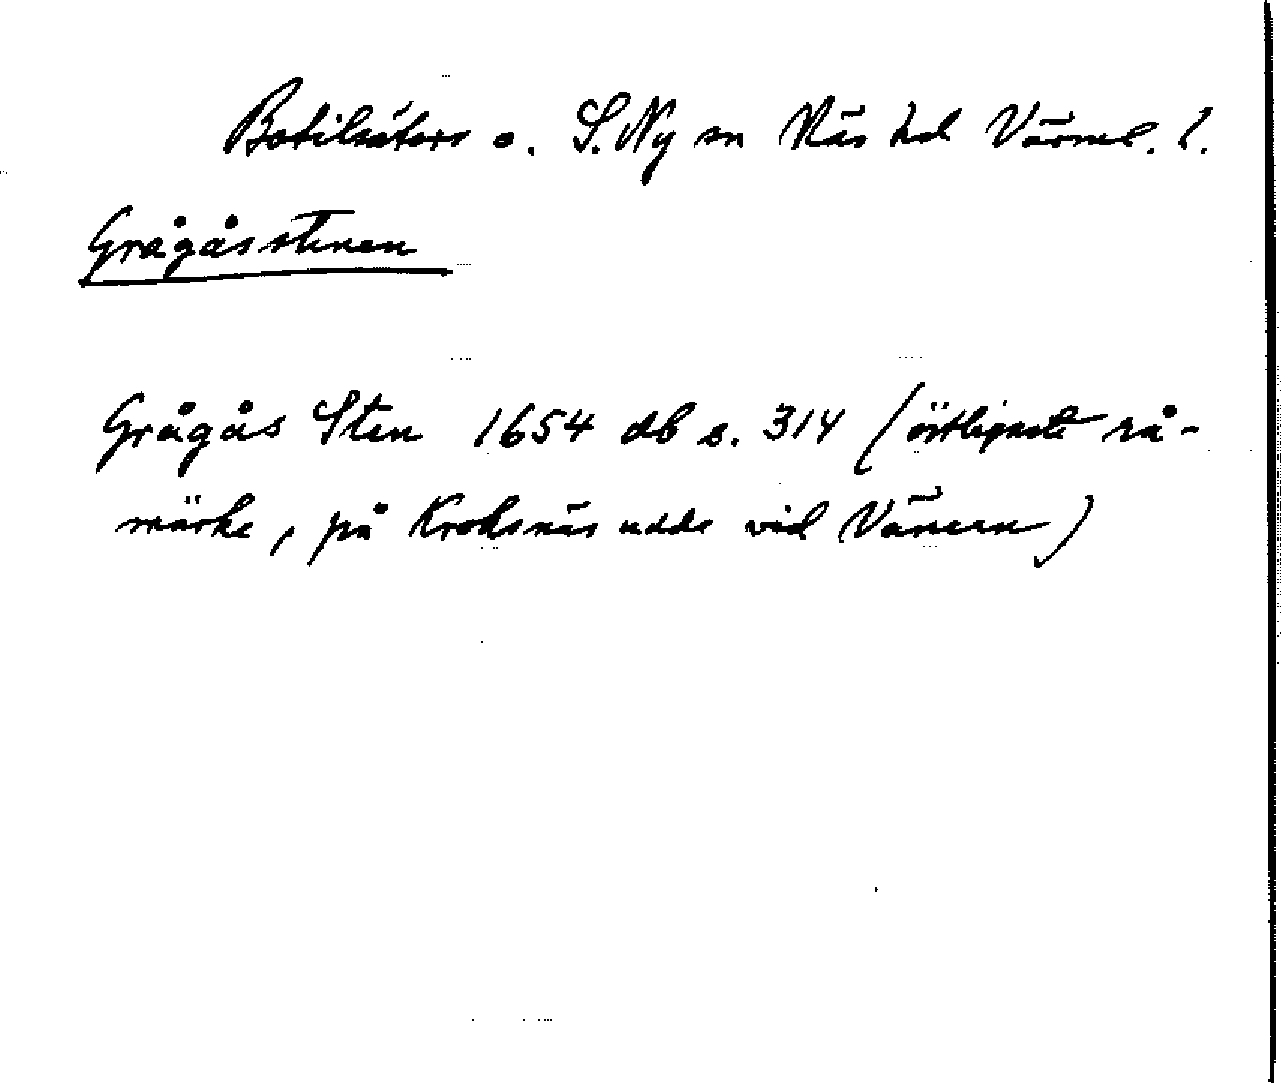 Botilsäters o. S. Ny sn Näs hd Värml. l.
Grågåsstenen
Grågås Sten 1654 db s. 314 (östligaste rå-
märke, på Kroksnäs udde vid Vänern)